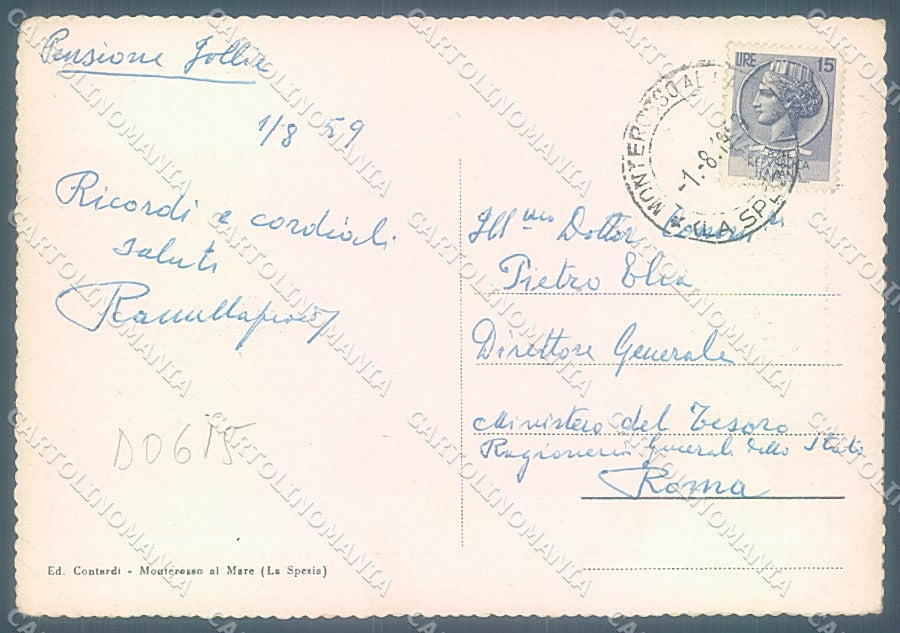 Pensione Jollie
1/8 59
Ricordi e cordiali
saluti
D0615
Ed. Contardi - Monterosso al Mare (La Spezia)
LIRE 15
REPVBBLICA
ITALIANA
MONTEROSSO AL
-1.-8.
(LA SPEZIA)
Ill mo Dottor
Pietro Elia
Direttore Generale
Ministero del Tesoro
Ragioneria Generale dello Stato
Roma
CARTOLINOMANIA